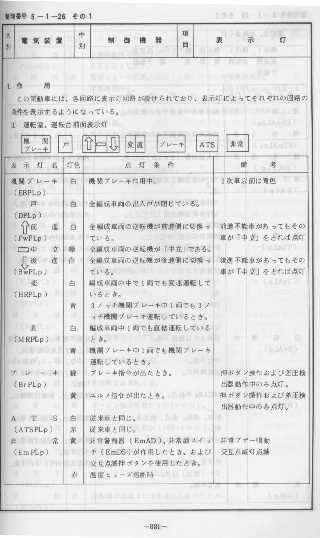 管理番号 5－1－26 その1
大別 電気装置 中別 制御機器 項目 表示灯
1. 作用
この気動車には、各回路に表示灯回路が設けられており、表示灯によってそれぞれの回路の
条件を表示するようになっている。
① 運転室、運転台前面表示灯
機関ブレーキ 戸 ⇧⇔⇩ 変 直 ブレーキ ATS 非常
表示灯名 灯色 点灯条件 備考
機関ブレーキ 白 機関ブレーキ作用中。 1次車以前は青色
(EBPLp)
戸 白 全編成車両の出入戸が閉じている。
(DPLp)
⇧前進 白 全編成車両の逆転機が前進側に切換っ 前進不能車があってもその
(FwPLp) ている。 車が「中立」をとれば点灯
中立 緑 全編成車両の逆転機が「中立」である。
⇩後進 白 全編成車両の逆転機が後進側に切換っ 後進不能車があってもその
(BwPLp) ている。 車が「中立」をとれば点灯
変 白 編成車両の中で1両でも変速運転して
(HRPLp) いるとき。
青 3ノッチ機関ブレーキ中1両でも3ノ
ッチ機関ブレーキ運転しているとき。
直 白 編成車両中1両でも直結運転している
(MRPLp) とき。
青 機関ブレーキ中1両でも機関ブレーキ
運転しているとき。
ブレーキ 緑 ブレーキ指令が出たとき。 押ボタン操作および差圧検
(BrPLp) 出器動作中のみ点灯。
黄 ユルメ指令が出たとき。 押ボタン操作および差圧検
出器動作中のみ点灯。
ATS 白 従来車と同じ。
(ATSPLp) 赤 従来車と同じ。
非常 黄 非常警報器(EmAD)、非常 スイッ 非常ブザー鳴動
(EmPLp) チ(EmDS)が作用したとき、および 交互点滅灯点滅
交互点滅押ボタンを使用したとき。
赤 温度ヒューズ溶断時
—881—